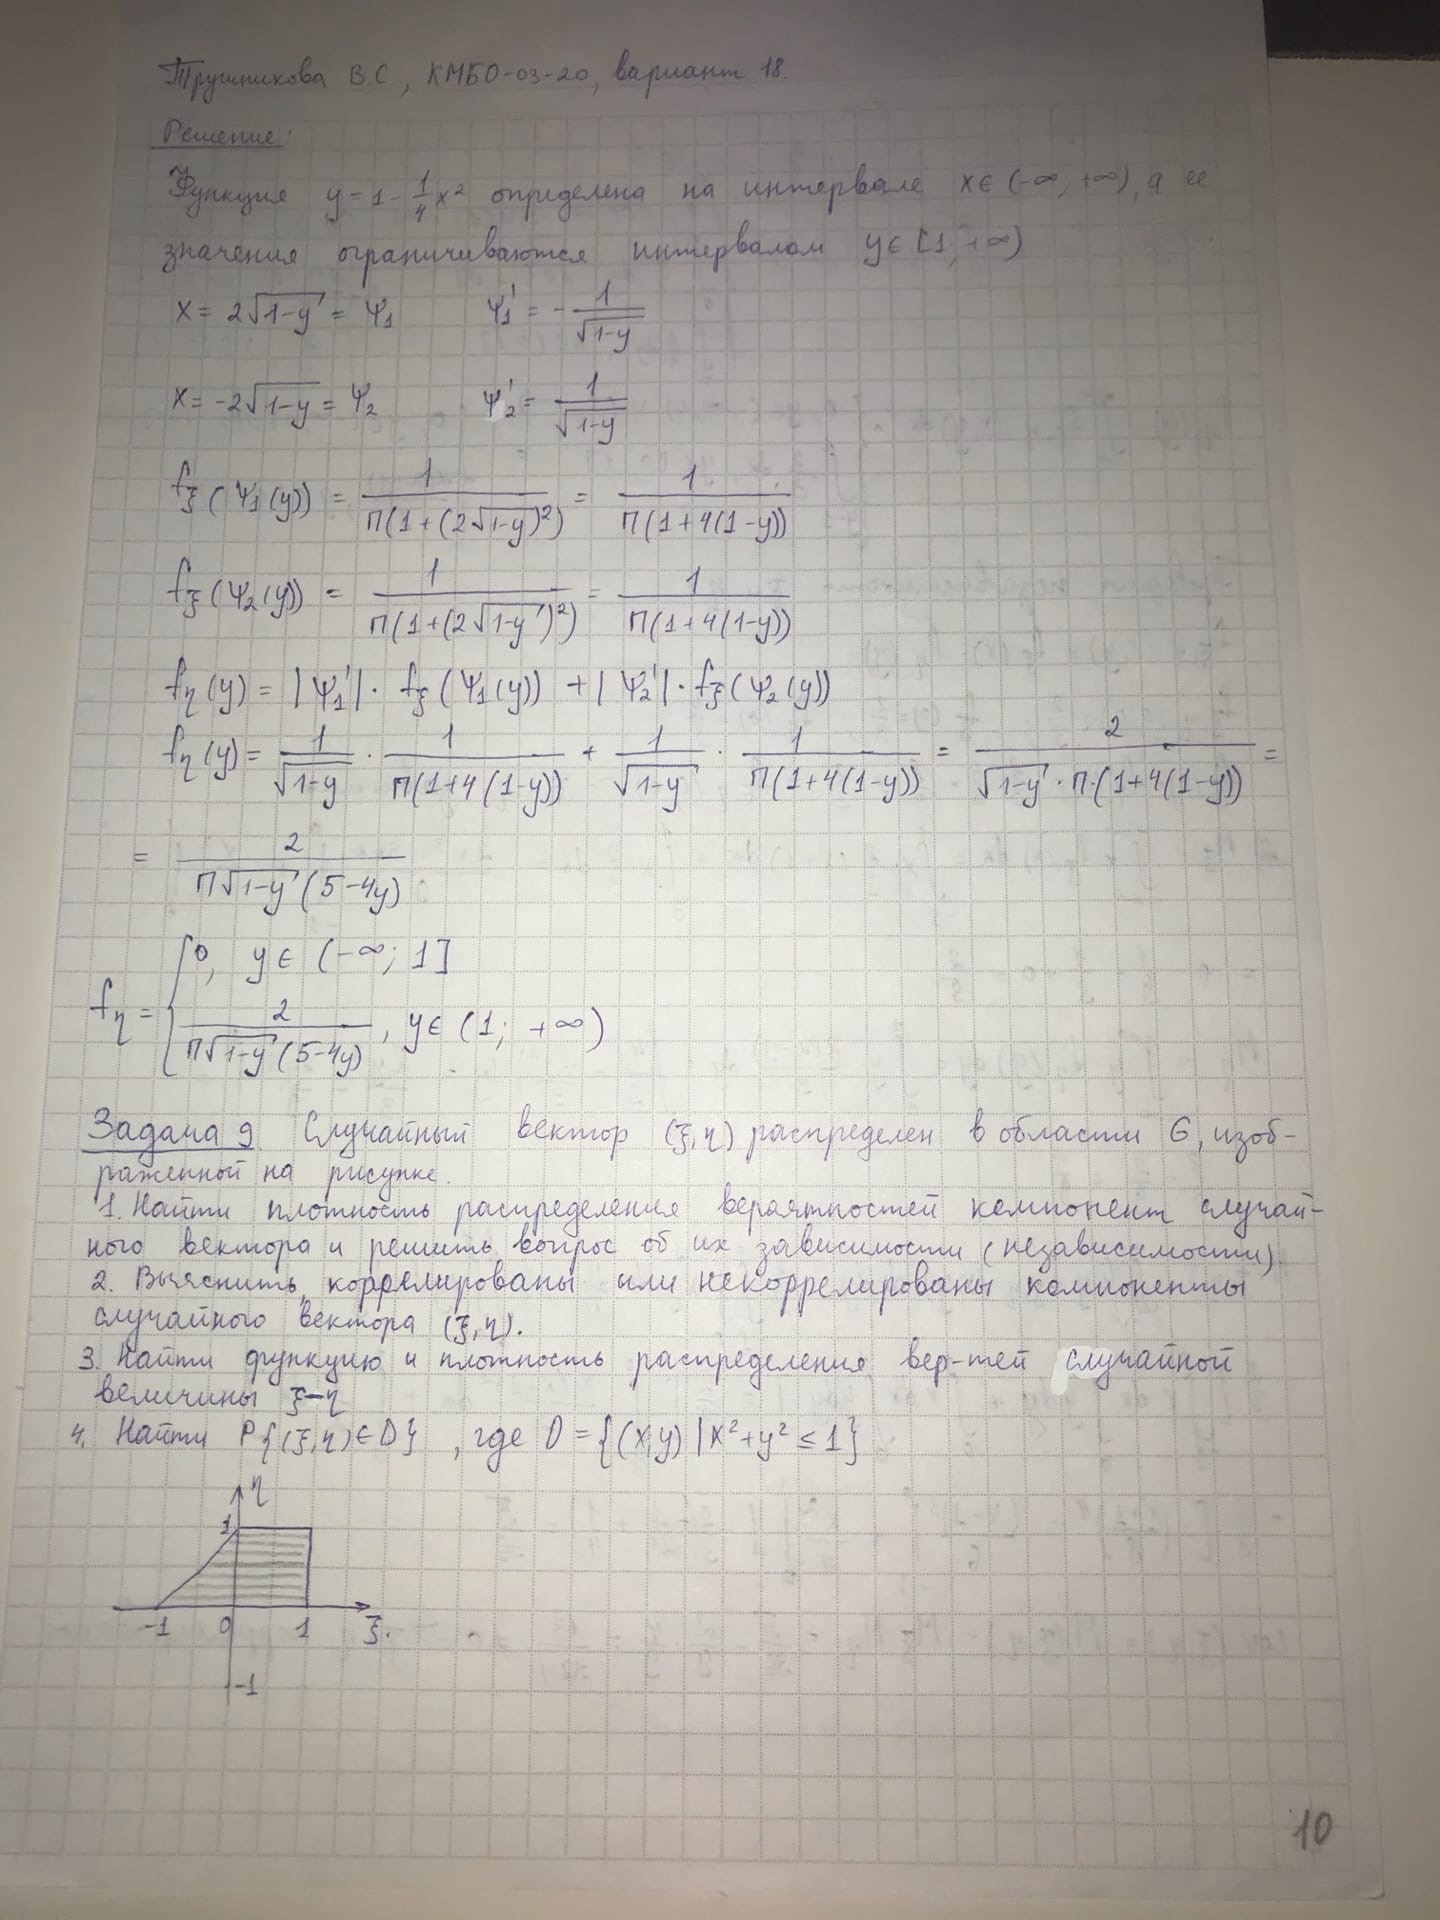 Трушникова В.С., КМБО-03-20, вариант 18.
Решение:
Функция y = 1 - 1/4 x² определена на интервале x ∈ (-∞; +∞), а ее
значения ограничиваются интервалом y ∈ [1; +∞)
x = 2√(1-y) = Ψ₁   Ψ₁' = - 1/√(1-y)
x = -2√(1-y) = Ψ₂   Ψ₂' = 1/√(1-y)
f_ξ(Ψ₁(y)) = 1/(π(1+(2√(1-y))²)) = 1/(π(1+4(1-y)))
f_ξ(Ψ₂(y)) = 1/(π(1+(2√(1-y))²)) = 1/(π(1+4(1-y)))
f_η(y) = |Ψ₁'| · f_ξ(Ψ₁(y)) + |Ψ₂'| · f_ξ(Ψ₂(y))
f_η(y) = 1/√(1-y) · 1/(π(1+4(1-y))) + 1/√(1-y) · 1/(π(1+4(1-y))) = 2/(√(1-y) · π · (1+4(1-y))) =
= 2/(π√(1-y)(5-4y))
f_η = { 0, y ∈ (-∞; 1]
2/(π√(1-y)(5-4y)), y ∈ (1; +∞)
Задача 9 Случайный вектор (ξ,η) распределен в области G, изоб-
раженной на рисунке.
1. Найти плотность распределения вероятностей компонент случай-
ного вектора и решить вопрос об их зависимости (независимости).
2. Выяснить, коррелированы или некоррелированы компоненты
случайного вектора (ξ,η).
3. Найти функцию и плотность распределения вер-тей случайной
величины ξ-η
4. Найти P{(ξ,η) ∈ D}, где D = {(x,y) | x² + y² ≤ 1}
η
1
-1 0 1 ξ.
-1
10